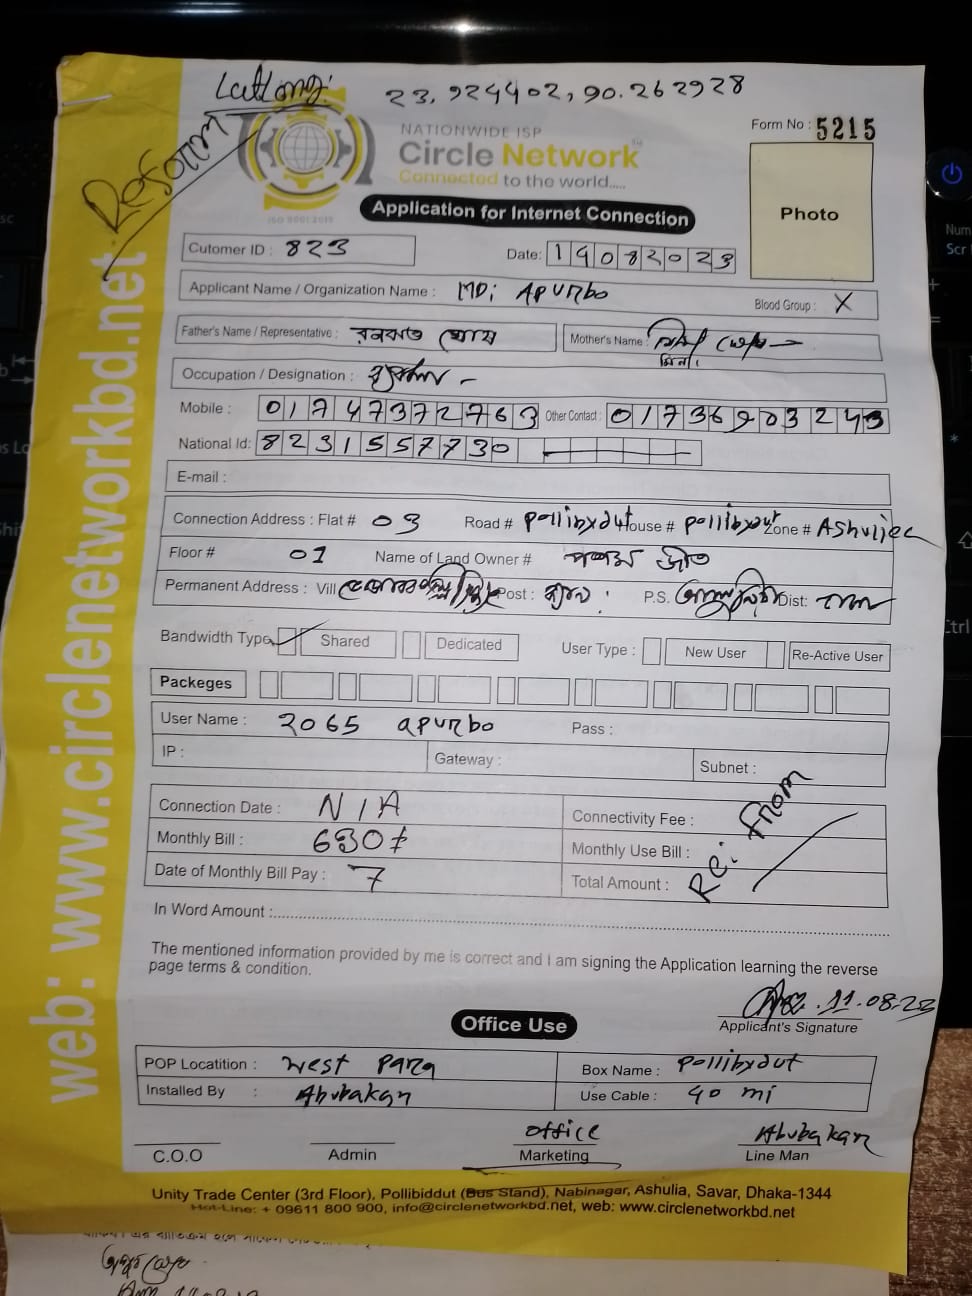 LatLong: 23.924402, 90.262928
Form No : 5215
NATIONWIDE ISP
Circle Network
Connected to the world.....
ISO 9001:2015
Application for Internet Connection
Photo
Cutomer ID : 823
Date: 14082023
Applicant Name / Organization Name : MD: APURbo
Blood Group : X
Father's Name / Representative :
Mother's Name :
Occupation / Designation :
Mobile : 01747372763 Other Contact :
National Id: 8231557730
E-mail :
Connection Address : Flat # 03 Road # pollibydut House # pollibydut Zone # Ashuliea
Floor # 01 Name of Land Owner #
Permanent Address : Vill Post : P.S. Dist:
Bandwidth Type Shared Dedicated User Type : New User Re-Active User
Packeges
User Name : 2065 apurbo Pass :
IP : Gateway : Subnet :
Connection Date : N/A Connectivity Fee :
Monthly Bill : 630 Monthly Use Bill :
Date of Monthly Bill Pay : 7 Total Amount :
Re: From
In Word Amount :
The mentioned information provided by me is correct and I am signing the Application learning the reverse
page terms & condition.
11.08.23
Applicant's Signature
Office Use
POP Locatition : west para Box Name : pollibydut
Installed By : Abubakar Use Cable : 40 mi
office Abubakar
C.O.O Admin Marketing Line Man
Unity Trade Center (3rd Floor), Pollibiddut (Bus Stand), Nabinagar, Ashulia, Savar, Dhaka-1344
Hot-Line: + 09611 800 900, info@circlenetworkbd.net, web: www.circlenetworkbd.net
web: www.circlenetworkbd.net